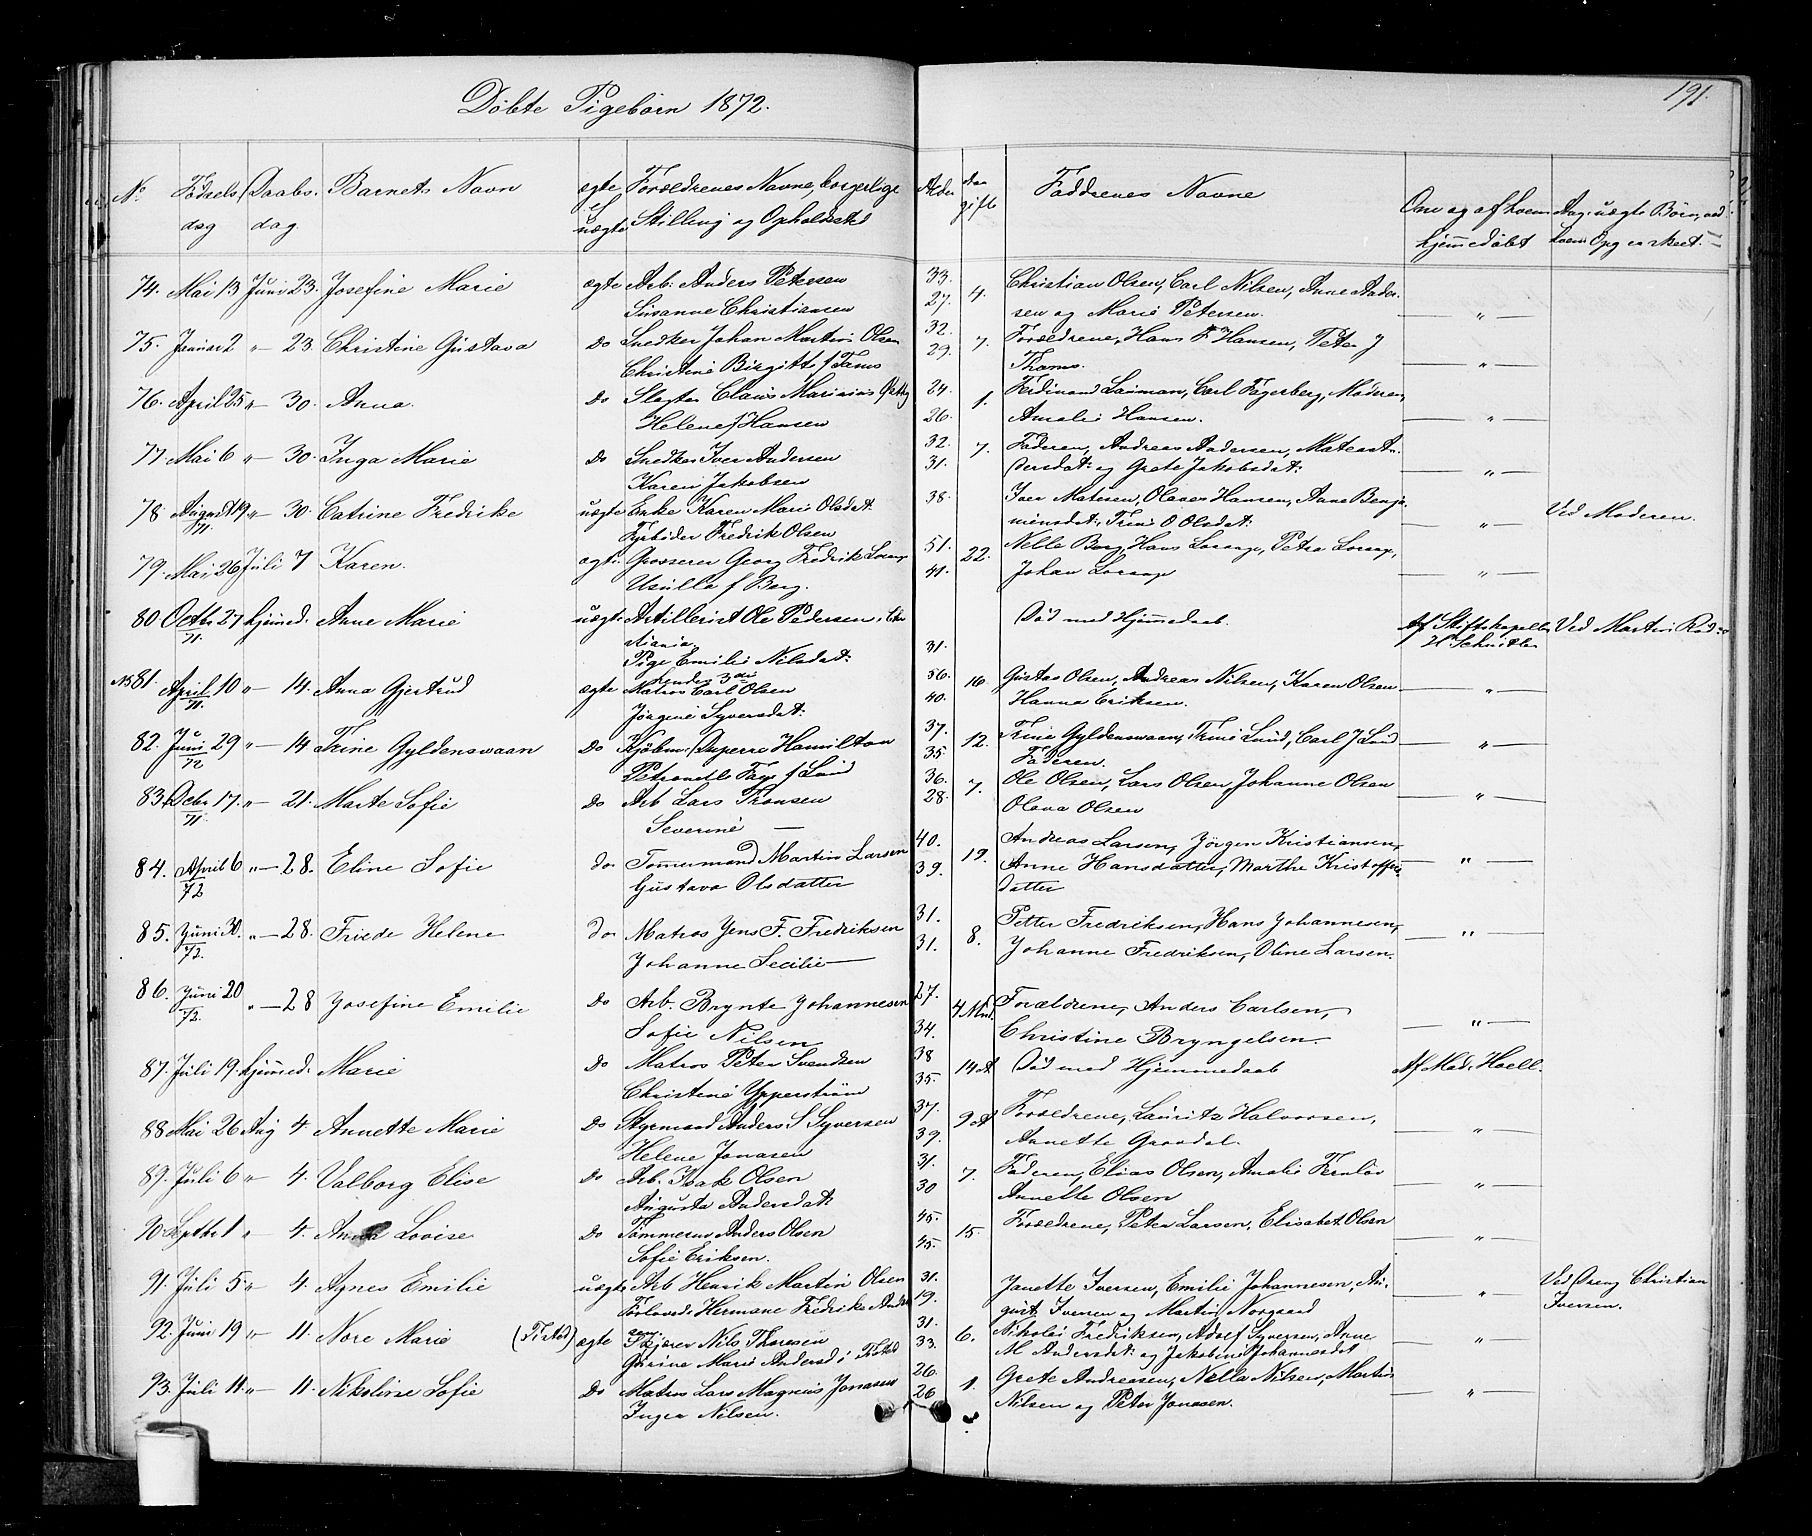 Døbte Pigebørn 1872.
191.
No Fødsels dag Daabs. dag Barnets Navn ægte el uægte Forældrenes Navne, borgerlige Stilling og Opholdssted Alder gift Faddrenes Navne Om og af hvem hjemmedøbt uægte Børn, ved hvem Opg er skeet.
74. Mai 13 Juni 23. Josefine Marie ægte Arb. Anders Petersen 33. 4. Christian Olsen, Carl Nilsen, Anne Ander-
Susanne Christiansen 27. sen og Marie Petersen. — " —
75. Januar 2 " — 23. Christine Gustava Do Snedker Johan Martin Olsen 32. 7. Forældrene, Hans F Hansen, Peter J
Christine Birgitte f Tams 29. Thams. — " —
76. April 25 " — 30. Anna. Do Slagter Claus Marinius 24. 1. Ferdinand Lauman, Carl Fagerberg, Moderen,
Helene f Hansen 26. Amalie Hansen. — " —
77. Mai 6 " — 30. Inga Marie Do Snedker Iver Andersen 32. 7. Faderen, Andreas Andersen, Matea An-
Karen Jakobsen 31. dersdat: og Grete Jakobsdat: — " —
78 August 19 /71. " — 30. Catrine Fredrike uægte Enke Karen Marie Olsdat. 38. Iver Matisen, Olaves Hansen, Anne Benja- Ved Moderen.
Fyrbøder Fredrik Olsen minsdat:, Trine O Olsdat: — " —
79. Mai 26 Juli 7 Karen. ægte. Grosserer Georg Fredrik Lorange 51. 22. Nelle Borg, Hans Lorange, Petra Lorange,
Ursulla f Berg. 41. Johan Lorange — " —
80 Octbr 27 /71. hjemmed. Anne Marie uægte Artillerist Ole Pedersen, Chri Død med Hjemmedaab. Af Stiftskapellan Ved Martin Rød
stiania H Schnitler
Pige Emilie Nilsdat: 31.
hendes 3die
81. April 10 /71. " — 14. Anna Gjertrud ægte Matros Carl Olsen 56. 16. Gustav Olsen, Andreas Nilsen, Karen Olsen — " —
Jørgine Syversdat: 40. Hanna Eriksen.
82. Juni 29 /72 " — 14 Trine Gyldensvaan Do Kjøbm: Duperre Hamilton 37. 12. Trine Gyldensvaan, Trine Lund, Carl J Lund — " —
Petronelle f Lund 35 Faderen.
83. Decbr 17. /71. " — 21. Marte Sofie Do Arb Lars Tronsen 36. 7. Ole Olsen, Lars Olsen, Johanne Olsen — " —
Severine — 28. Olava Olsen
84. April 6 /72 " — 28. Eline Sofie do Tømmermand Martin Larsen 40. 19. Andreas Larsen, Jørgen Kristiansen, — " —
Gustava Olsdatter 39. Anne Hansdatter, Marthe Kristoffers-
datter
85. Juni 30. /72. " — 28. Friede Helene do Matros Jens F. Fredriksen 31. 8. Petter Fredriksen, Hans Johannesen, — " —
Johanne Secilie — 31. Johanne Fredriksen, Oline Larsen.
86. Juni 20 /72. " — 28 Josefine Emilie Do Arb. Brynte Johannesen 27. 4 Mnd. Forældrene, Anders Carlsen,
Sofie Nilsen 34. Christine Bryngelsen — " —
87. Juli 19 hjemmed. Marie Do Matros Peter Svendsen 38 14 A Død med Hjemmedaab Af Mad. Hoell.
Christine Ypperström 35.
88 Mai 26 Aug 4. Annette Marie Do Styrmand Anders S Syversen 37. 9 A Forældrene, Lauritz Halvorsen,
Helene Jonasen 39. Annette Graadal. — " —
89. Juli 6 " — 4. Valborg Elise Do Arb. Isak Olsen 31. 7. Faderen, Elias Olsen, Amalie Fernløv
Augusta Andersdat: 30 Annette Olsen — " —
90 Septbr 1 " — 4. Anna Lovise Do Tømmerm Anders Olsen 45. 15. Forældrene, Peter Larsen, Elisabet Olsen
Sofie Eriksen. 45. — " —
91. Juli 5 " — 4. Agnes Emilie uægte Arb Henrik Martin Olsen 31. Janette Iversen, Emilie Johannesen, Au- Ved Dreng Christian
Forlovede Hermane Fredrike 19. gust Iversen og Martin Norgaard — " — Iversen.
92. Juni 19 " — 11. Nore Marie (Tistad) ægte Nils Thoresen 31. 6. Nikolai Fredriksen, Adolf Syversen, Anne
Gurine Marie Andersd i 33. M Andersdat: og Jakobine Johannesdat — " —
93. Juli 11. " — 11. Nikoline Sofie Do Matros Lars Magnus Jonasen 26. 1. Grete Andreasen, Nella Nilsen, Martin
Inger Nilsen. 26 Nilsen og Peter Jonasen. — " —